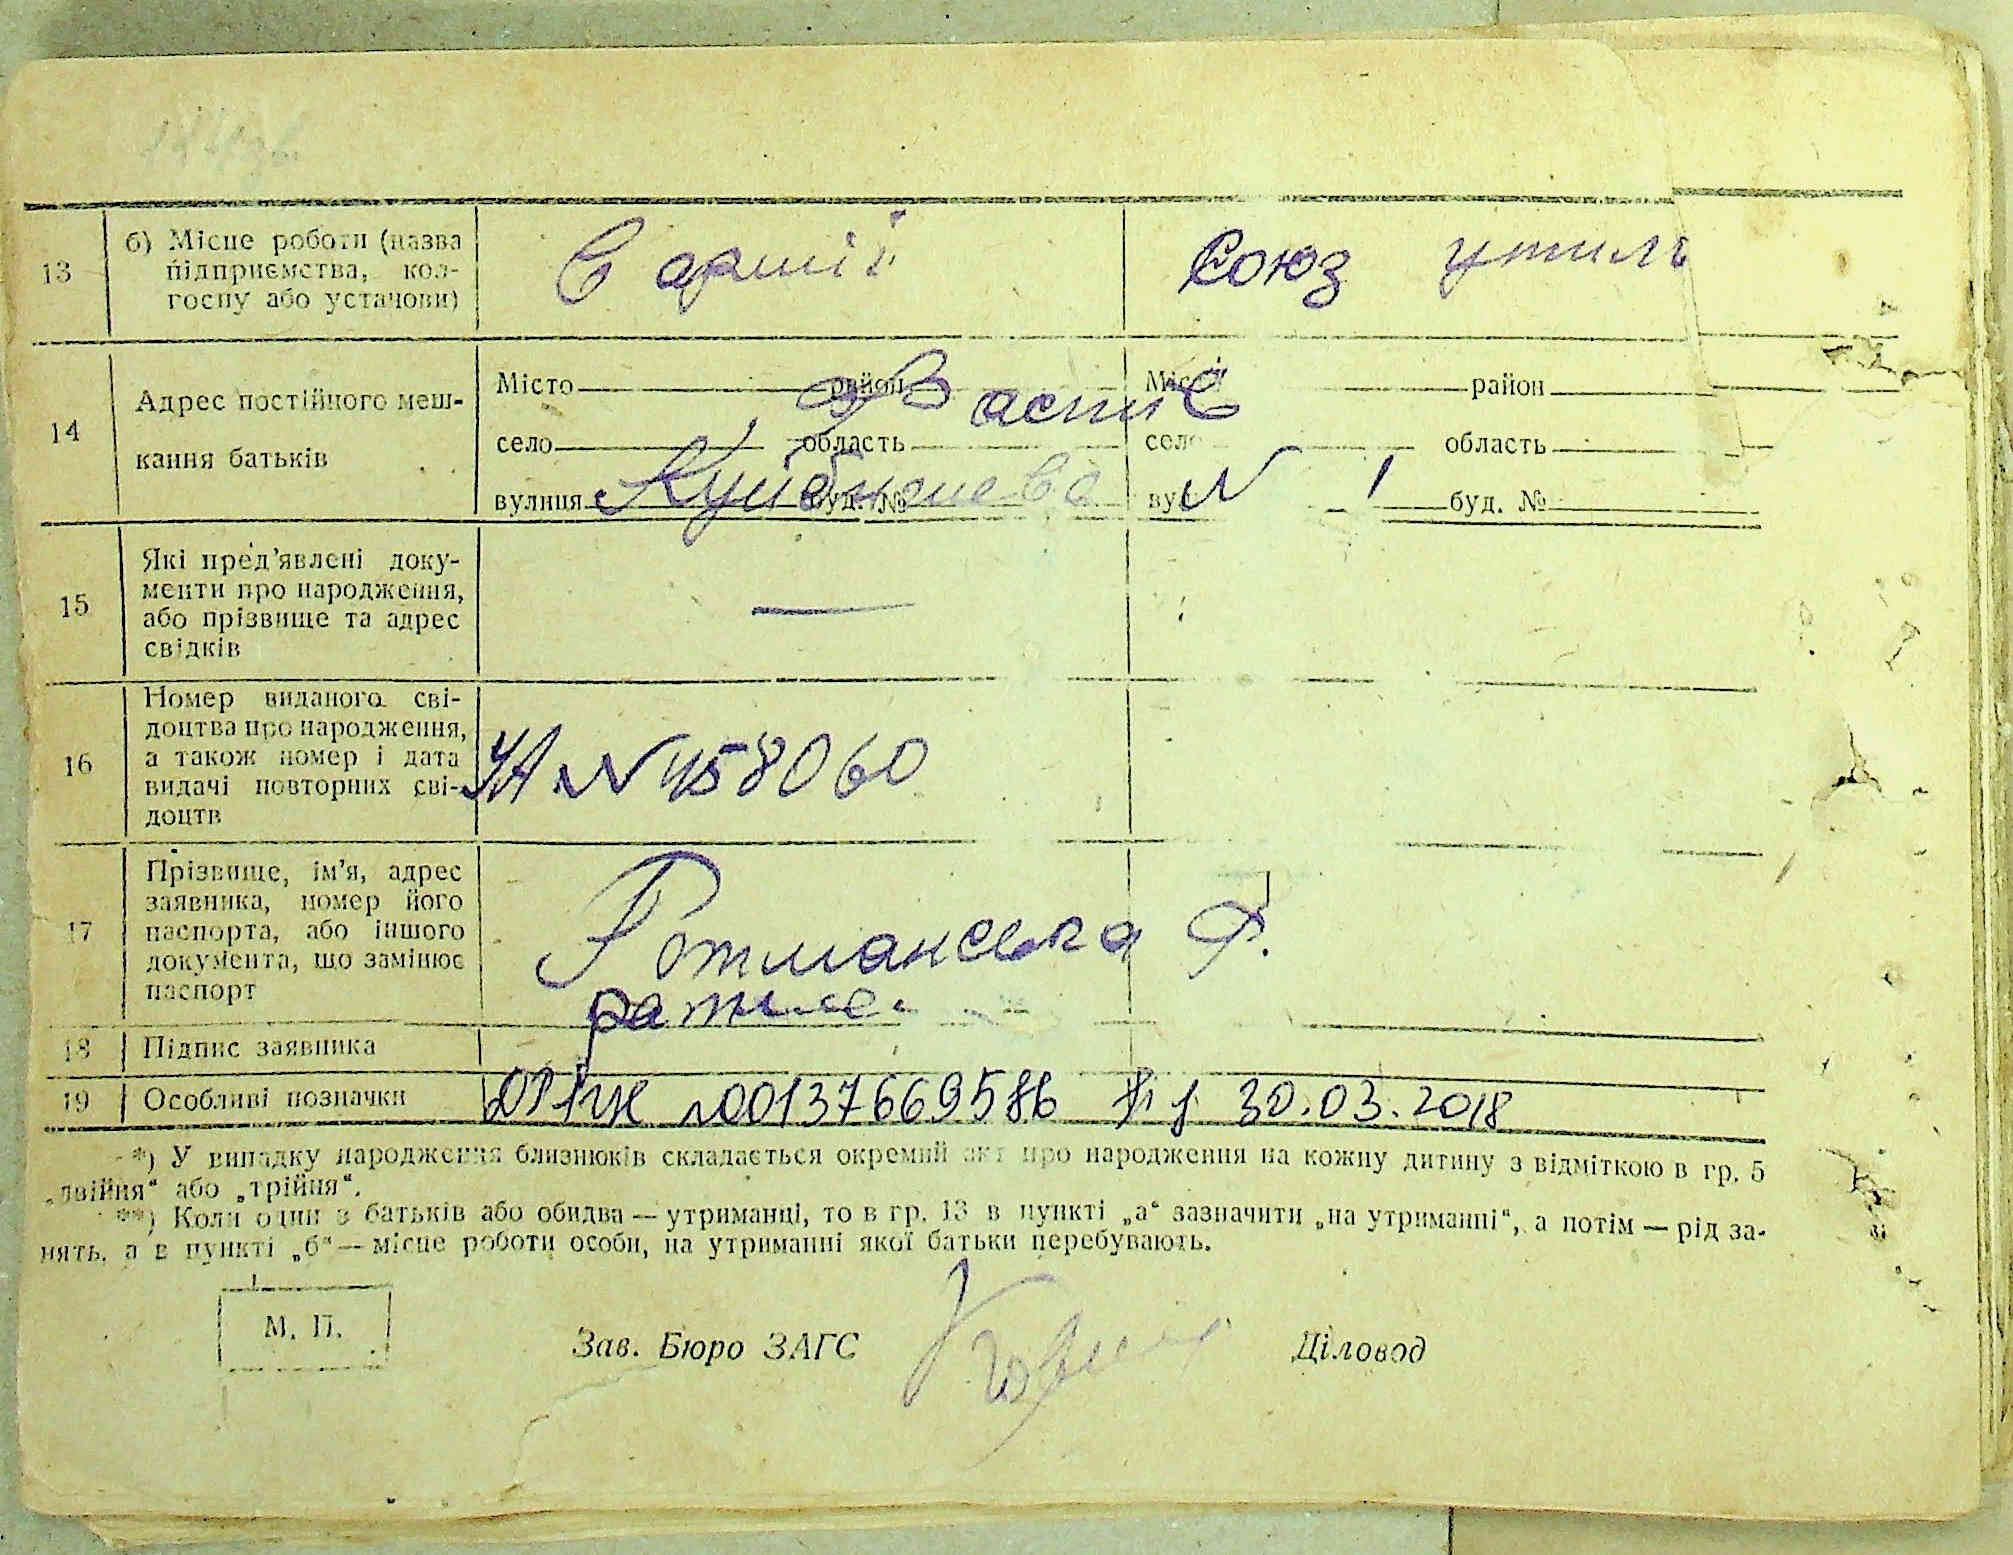 13 б) Місце роботи (назва підприємства, колгоспу або установи) В армії Союз утиль
14 Адрес постійного мешкання батьків
Місто район Місто район
село область село область
вулиця Куйбишева буд. № вул № 1 буд. №
15 Які пред'явлені документи про народження, або прізвище та адрес свідків —
16 Номер виданого свідоцтва про народження, а також номер і дата видачі повторних свідоцтв УА № 458060
17 Прізвище, ім'я, адрес заявника, номер його паспорта, або іншого документа, що замінює паспорт Ротманська Ф.
18 Підпис заявника
19 Особливі позначки №00137669586 30.03.2018
*) У випадку народження близнюків складається окремий акт про народження на кожну дитину з відміткою в гр. 5
„двійня“ або „трійня“.
**) Коли один з батьків або обидва — утриманці, то в гр. 13 в пункті „а“ зазначити „на утриманні“, а потім — рід за-
нять, а в пункті „б“ — місце роботи особи, на утриманні якої батьки перебувають.
М. П.
Зав. Бюро ЗАГС Діловод